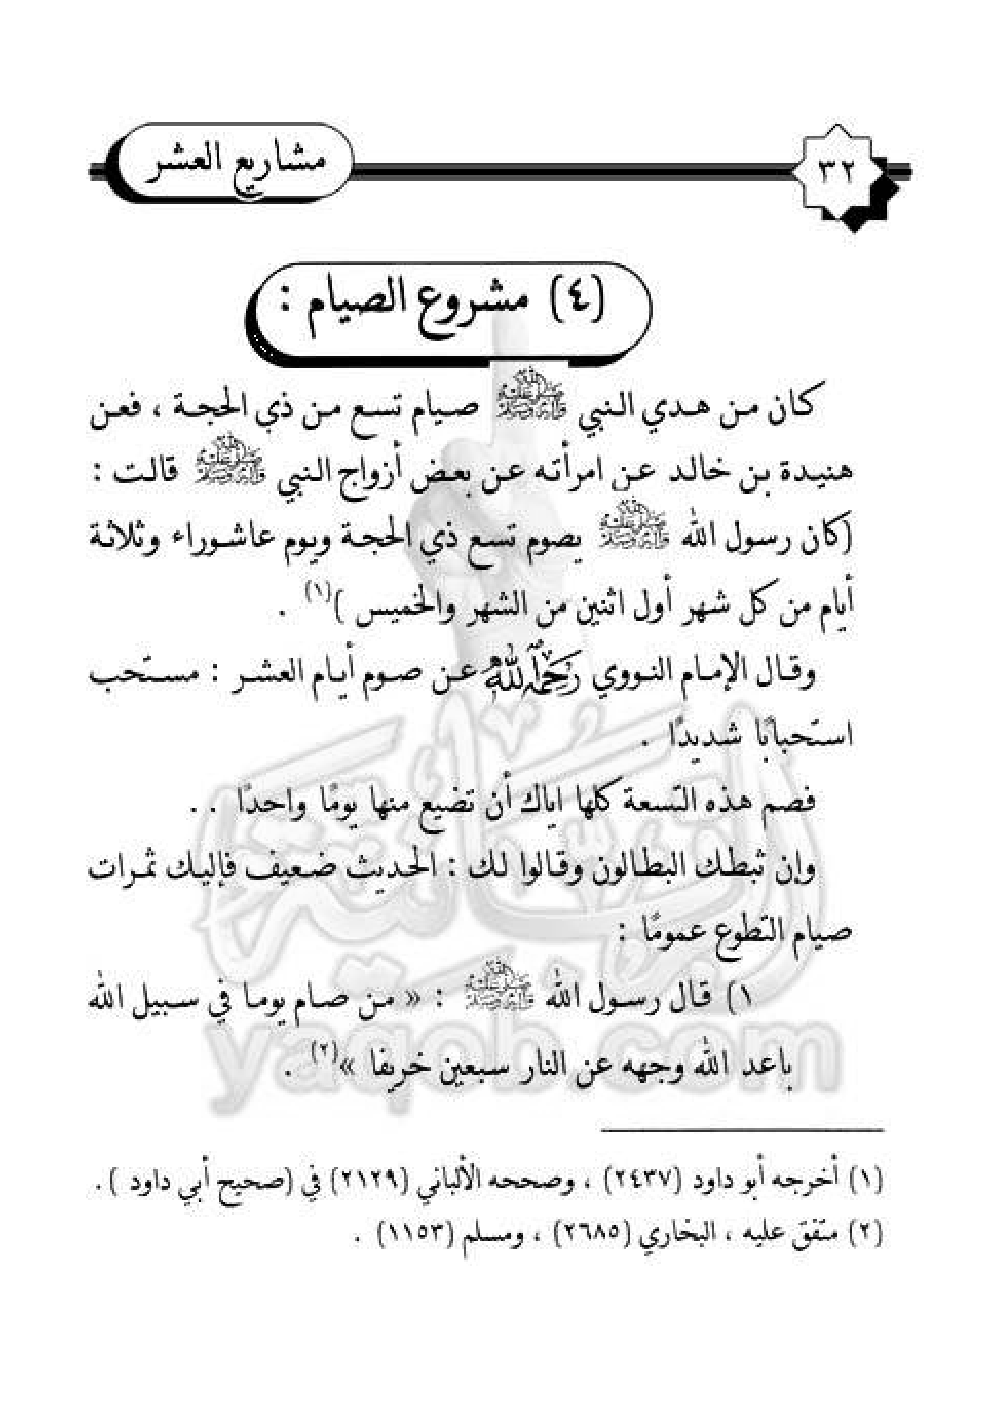 ٣٢
مشاريع العشر
(٤) مشروع الصيام :
كان من هدي النبي ﷺ صيام تسع من ذي الحجة ، فعن
هنيدة بن خالد عن امرأته عن بعض أزواج النبي ﷺ قالت :
(كان رسول الله ﷺ يصوم تسع ذي الحجة ويوم عاشوراء وثلاثة
أيام من كل شهر أول اثنين من الشهر والخميس )(١) .
وقال الإمام النووي رَحِمَهُ اللهُ عن صوم أيام العشر : مستحب
استحبابًا شديدًا .
فصم هذه التسعة كلها اياك أن تضيع منها يومًا واحدًا . .
وإن ثبطك البطالون وقالوا لك : الحديث ضعيف فإليك ثمرات
صيام التطوع عمومًا :
١) قال رسول الله ﷺ : « من صام يوما في سبيل الله
باعد الله وجهه عن النار سبعين خريفا »(٢) .
(١) أخرجه أبو داود (٢٤٣٧) ، وصححه الألباني (٢١٢٩) في (صحيح أبي داود ) .
(٢) متفق عليه ، البخاري (٢٦٨٥) ، ومسلم (١١٥٣) .
yaqob.com